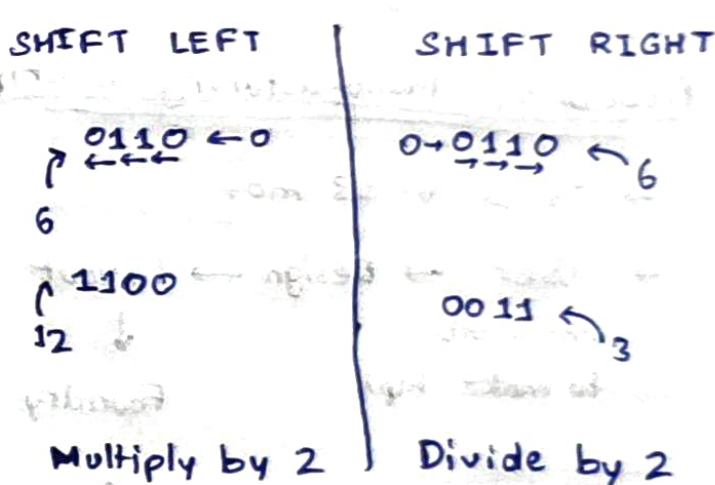 SHIFT LEFT
0110 ← 0
6
1100
12
Multiply by 2
SHIFT RIGHT
0→ 0110
6
0011
3
Divide by 2